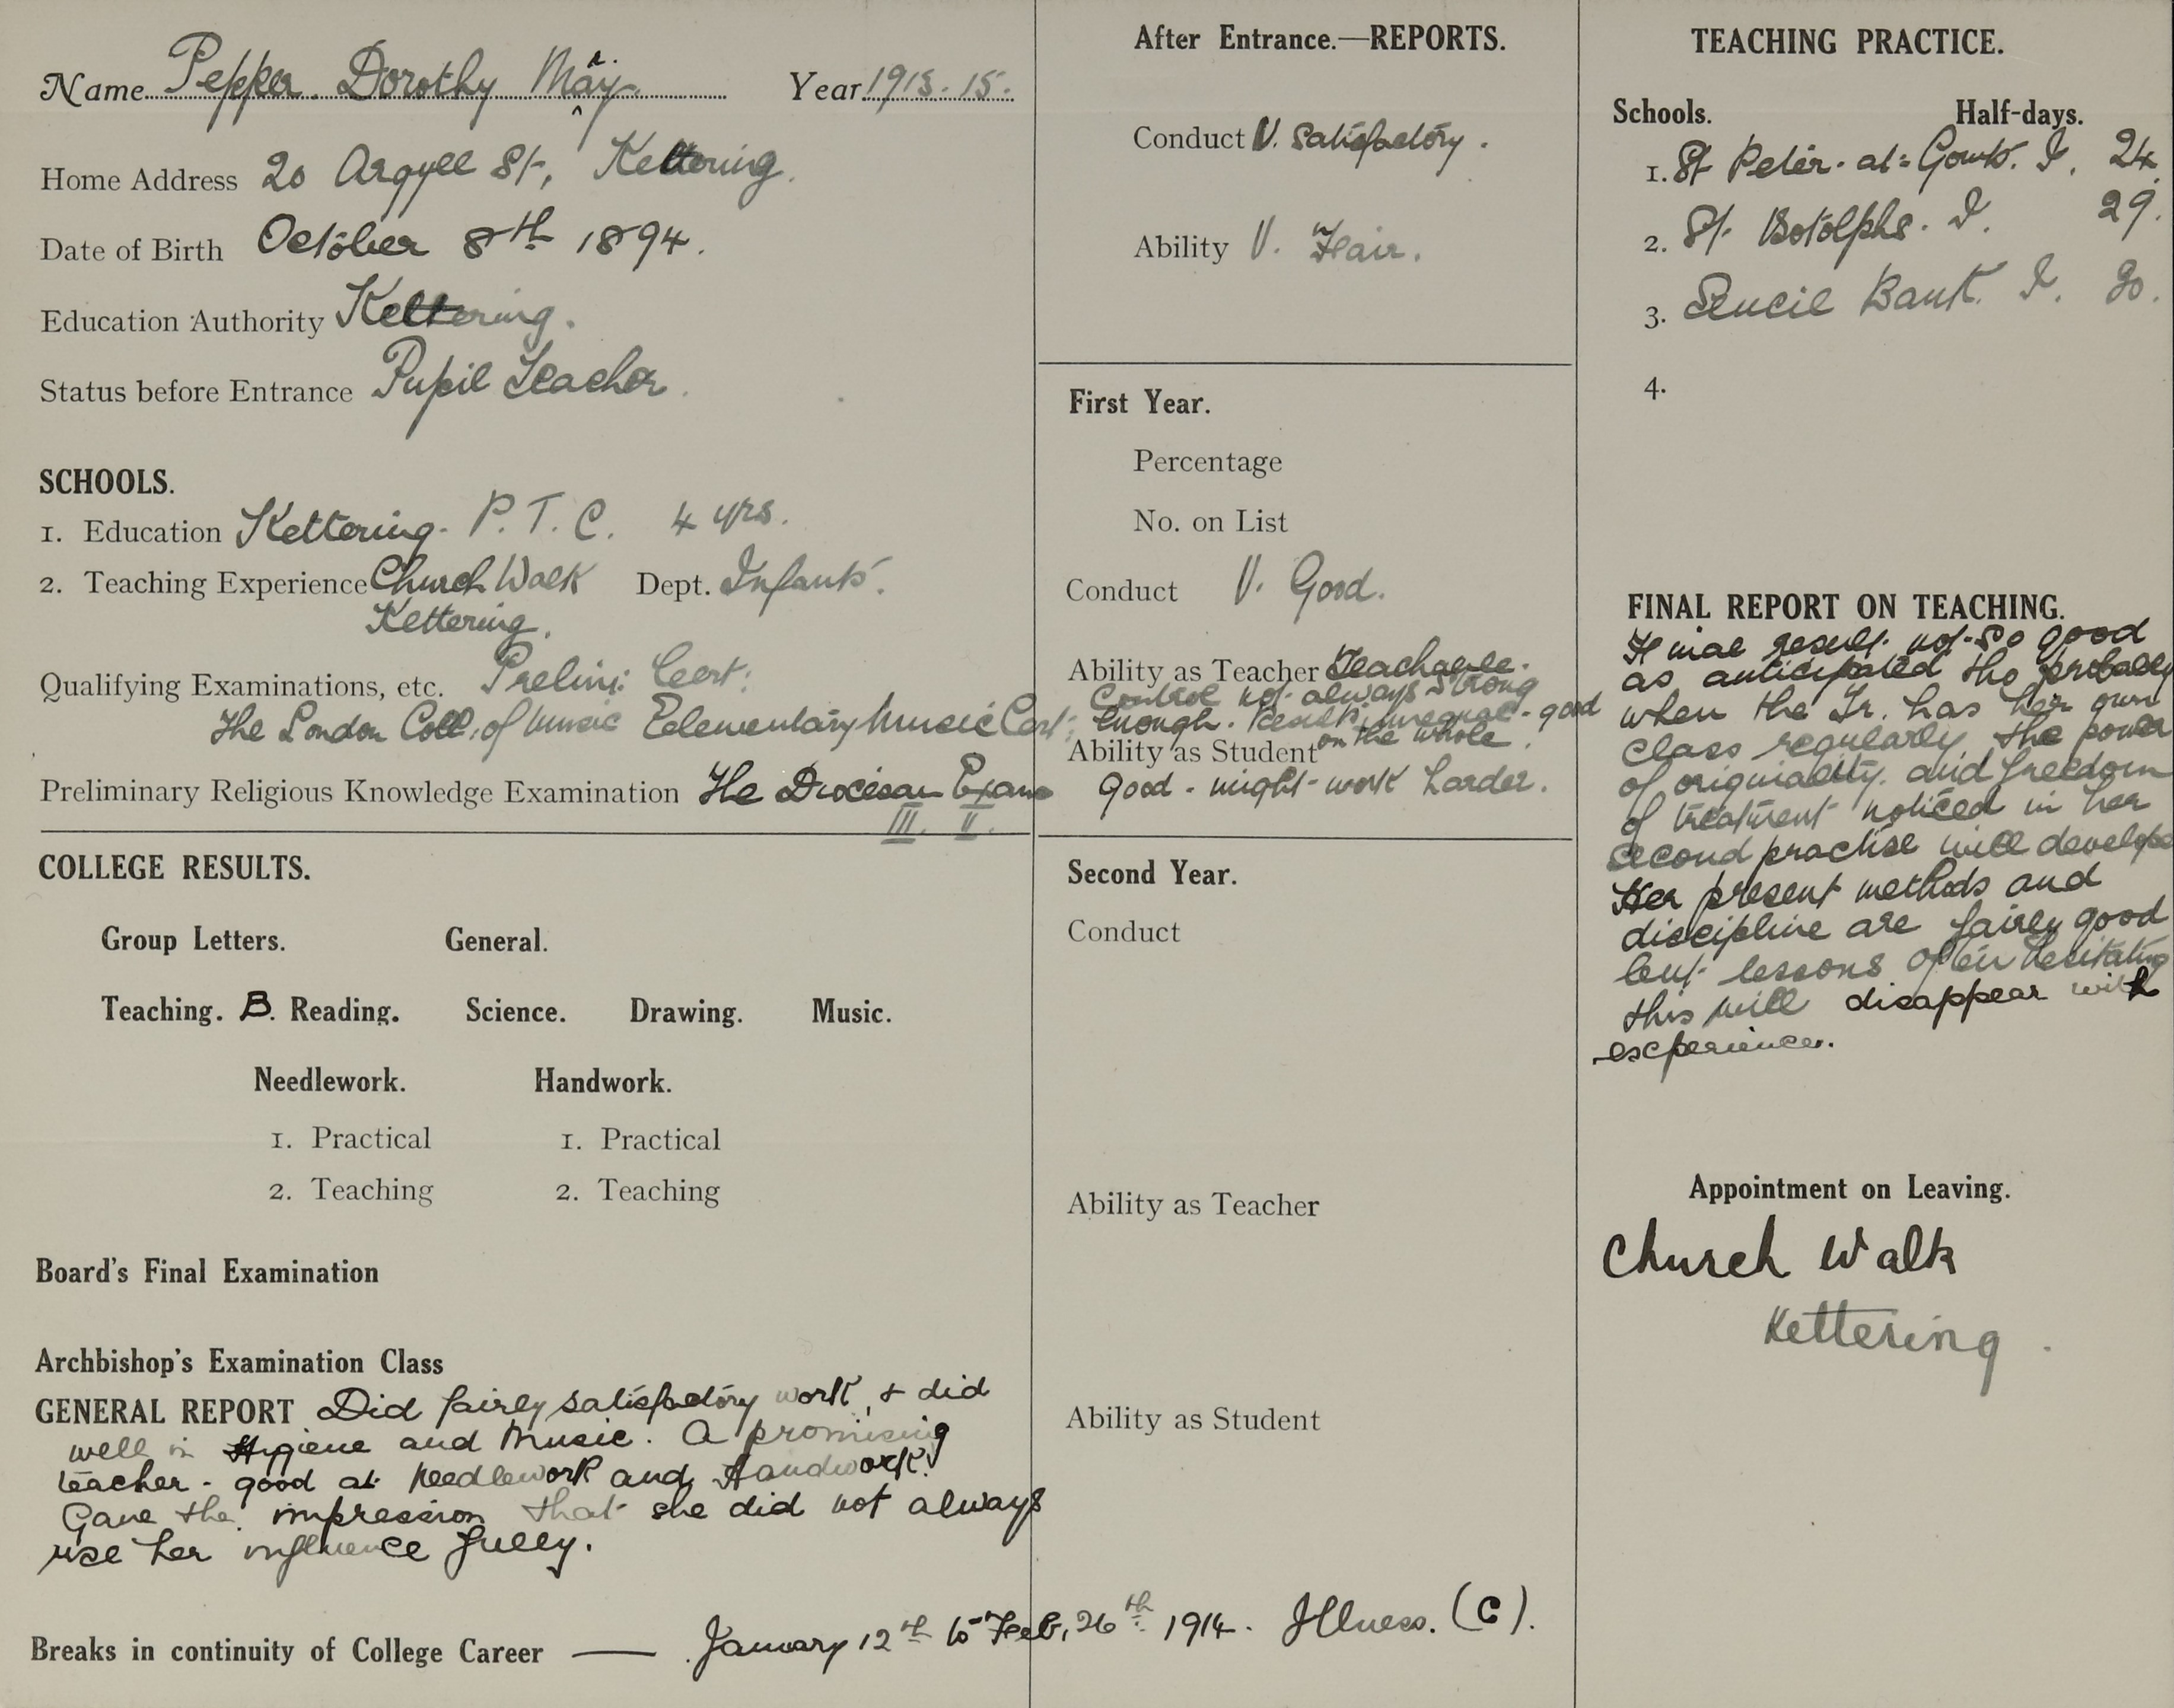 Name Pepper. Dorothy May. Year 1913.15.
Home Address 20 Argyll St, Kettering.
Date of Birth October 8th 1894.
Education Authority Kettering.
Status before Entrance Pupil Teacher.
SCHOOLS.
1. Education Kettering. P. T. C. 4 yrs.
2. Teaching Experience Church Walk Dept. Infants.
Kettering.
Qualifying Examinations, etc. Prelim: Cert:
The London Coll. of Music Elementary Music Cert:
Preliminary Religious Knowledge Examination The Diocesan Exam
III. II.
COLLEGE RESULTS.
Group Letters. General.
Teaching. B. Reading. Science. Drawing. Music.
Needlework. Handwork.
1. Practical 1. Practical
2. Teaching 2. Teaching
Board's Final Examination
Archbishop's Examination Class
GENERAL REPORT Did fairly satisfactory work, & did
well in Hygiene and Music. A promising
teacher - good at Needlework and Handwork.
Gave the impression that she did not always
use her influence fully.
Breaks in continuity of College Career — January 12th to Feb. 26th 1914. Illness. (C).
After Entrance.—REPORTS.
Conduct V. Satisfactory.
Ability V. Fair.
First Year.
Percentage
No. on List
Conduct V. Good.
Ability as Teacher Teachable.
Control not always strong
enough. Results unequal - good
Ability as Student on the whole.
Good - might work harder.
Second Year.
Conduct
Ability as Teacher
Ability as Student
TEACHING PRACTICE.
Schools. Half-days.
1. St Peter-at-Gowts. I. 24
2. St. Botolphs. I. 29.
3. Sincil Bank. I. 30.
4.
FINAL REPORT ON TEACHING.
Final result not so good
as anticipated tho' probably
when the Tr. has her own
class regularly, the power
of originality and freedom
of treatment noticed in her
second practise will develope
Her present methods and
discipline are fairly good
but lessons often hesitating
this will disappear with
experience.
Appointment on Leaving.
Church Walk
Kettering.